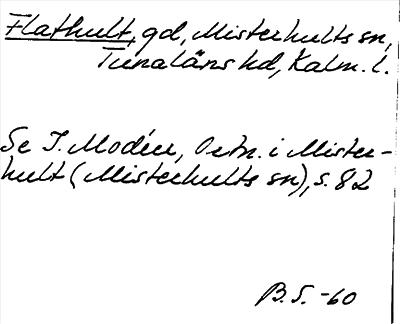 Flathult, gd, Misterhults sn,
Tunaläns hd, Kalm. l.
Se I. Modéer, Ortn. i Mister-
hult (Misterhults sn), s. 82
B.S. -60